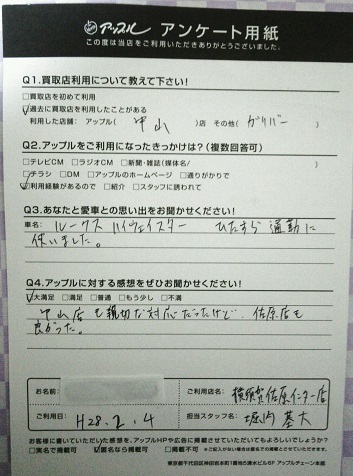 アップル アンケート用紙
この度は当店をご利用いただきありがとうございました。
Q1.買取店利用について教えて下さい!
□買取店を初めて利用
☑過去に買取店を利用したことがある
利用した店舗: アップル( 中山 )店 その他( ガリバー )
Q2.アップルをご利用になったきっかけは?(複数回答可)
□テレビCM □ラジオCM □新聞・雑誌(媒体名/ )
□チラシ □DM □アップルのホームページ □通りがかりで
☑利用経験があるので □紹介 □スタッフに誘われて
Q3.あなたと愛車との思い出をお聞かせください!
車名: ルークス ハイウェイスター ひたすら通勤に
使いました。
Q4.アップルに対する感想をぜひお聞かせください!
☑大満足 □満足 □普通 □もう少し □不満
中山店も親切な対応だったけど、佐原店も
良かった。
お名前
ご利用店名: 横須賀佐原インター店
ご利用日: H28.2.4
担当スタッフ名: 堀内 基大
お客様に書いていただいた感想を、アップルHPや広告に掲載させていただいてもよろしいでしょうか?
□実名で掲載可 ☑匿名なら掲載可 □掲載不可 ※ご記入がない場合は匿名での掲載とさせていただきます。
東京都千代田区神田佐久間町1番地の清水ビル6F アップルチェーン本部